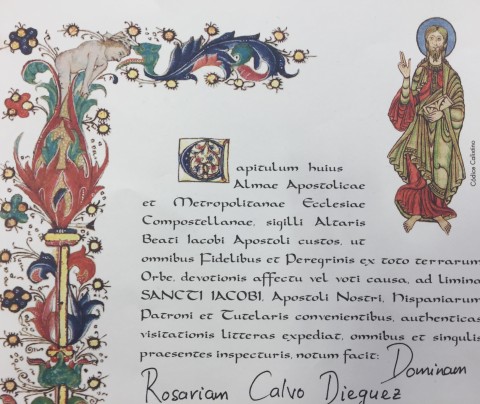 Capitulum huius
Almae Apostolicae
et Metropolitanae Ecclesiae
Compostellanae, sigilli Altaris
Beati Iacobi Apostoli custos, ut
omnibus Fidelibus et Peregrinis ex toto terrarum
Orbe, devotionis affectu vel voti causa, ad limina
SANCTI IACOBI, Apostoli Nostri, Hispaniarum
Patroni et Tutelaris convenientibus, authenticas
visitationis litteras expediat, omnibus et singulis
praesentes inspecturis, notum facit: Dominam
Rosariam Calvo Dieguez
Códice Calixtino